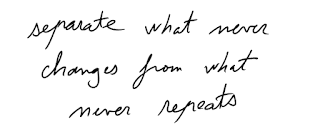 separate what never
changes from what
never repeats